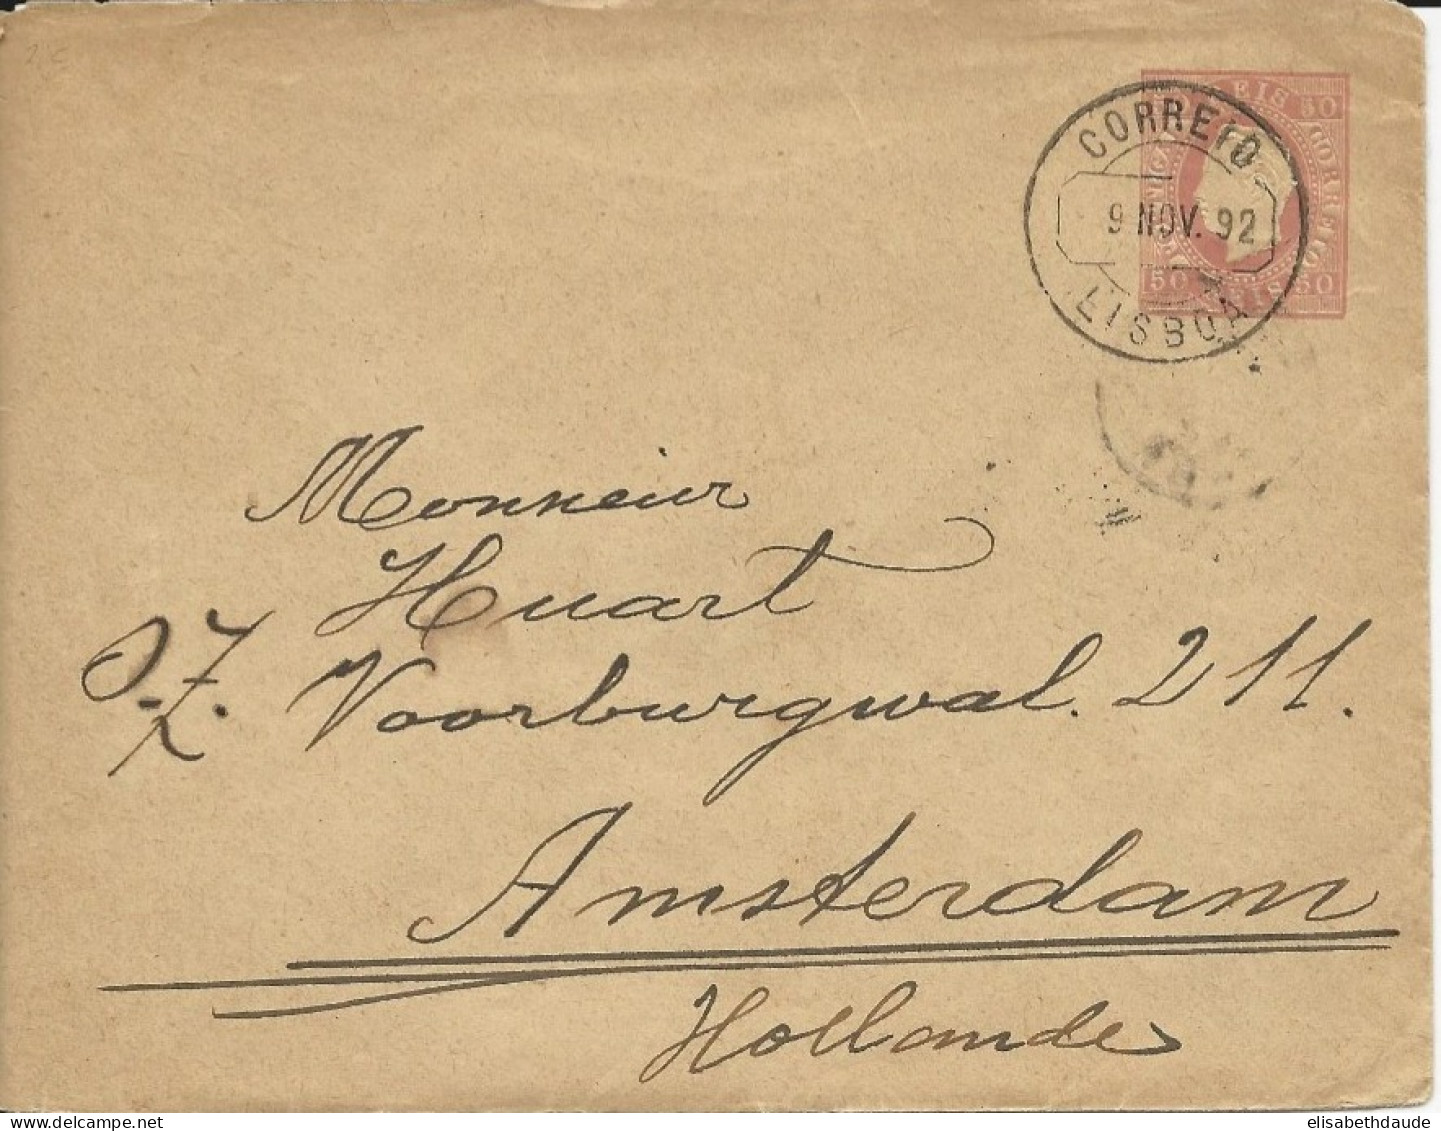 REIS 50
CORREIO
PORTUGAL
50 REIS 50
CORREIO
9 NOV. 92
LISBOA
Monsieur
Huart
O.Z. Voorburgwal. 211.
Amsterdam
Hollande
elisabethdaude